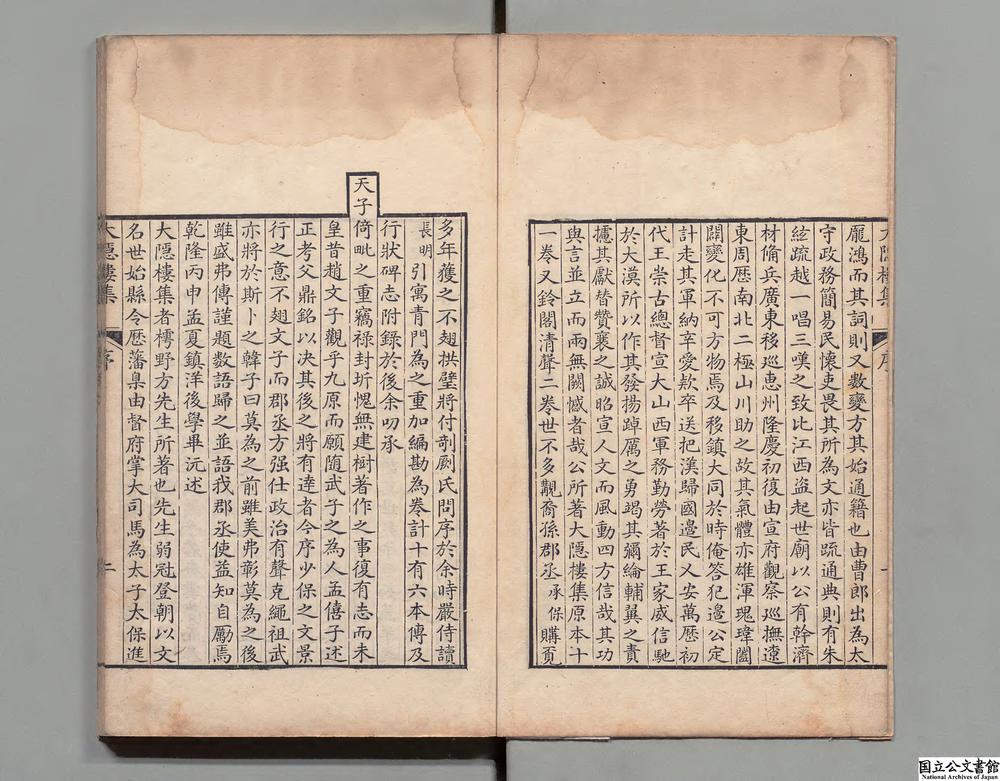 龎鴻而其詞則又數變方其始通籍也由曹郎出為太
守政務簡易民懷吏畏其所為文亦皆疏通典則有朱
絃疏越一唱三嘆之致比江西盜起世廟以公有幹濟
材俻兵廣東移巡惠州隆慶初復由宣府觀察巡撫遼
東周歷南北二極山川助之故其氣體亦雄渾瑰瑋闔
闢變化不可方物焉及移鎮大同於時俺答犯邉公定
計走其軍納辛愛欵卒送把漢歸國邉民又安萬歷初
代王崇古總督宣大山西軍務勤勞著於王家威信馳
於大漠所以作其發揚踔厲之勇竭其彌綸輔翼之責
攄其獻替贊襄之誠昭宣人文而風動四方信哉其功
與言並立而兩無闕憾者哉公所著大隱樓集原本十
一卷又鈴閣清聲二卷世不多覯裔孫郡丞承保購覔
大隱樓集
序
一
多年獲之不翅拱璧將付剞劂氏問序於余時嚴侍讀
長明引寓青門為之重加編勘為卷計十有六本傳及
行狀碑志附錄於後余叨承
天子倚毗之重竊禄封圻愧無建樹著作之事復有志而未
皇昔趙文子觀乎九原而願隨武子之為人孟僖子述
正考父鼎銘以決其後之將有達者今序少保之文景
行之意不翅文子而郡丞方强仕政治有聲克繩祖武
亦將於斯卜之韓子曰莫為之前雖美弗彰莫為之後
雖盛弗傳謹題數語歸之並語我郡丞使益知自勵焉
乾隆丙申孟夏鎮洋後學畢沅述
大隱樓集者樗野方先生所著也先生弱冠登朝以文
名世始縣令歷藩臬由督府掌大司馬為太子太保進
大隱樓集
序
二
国立公文書館
National Archives of Japan